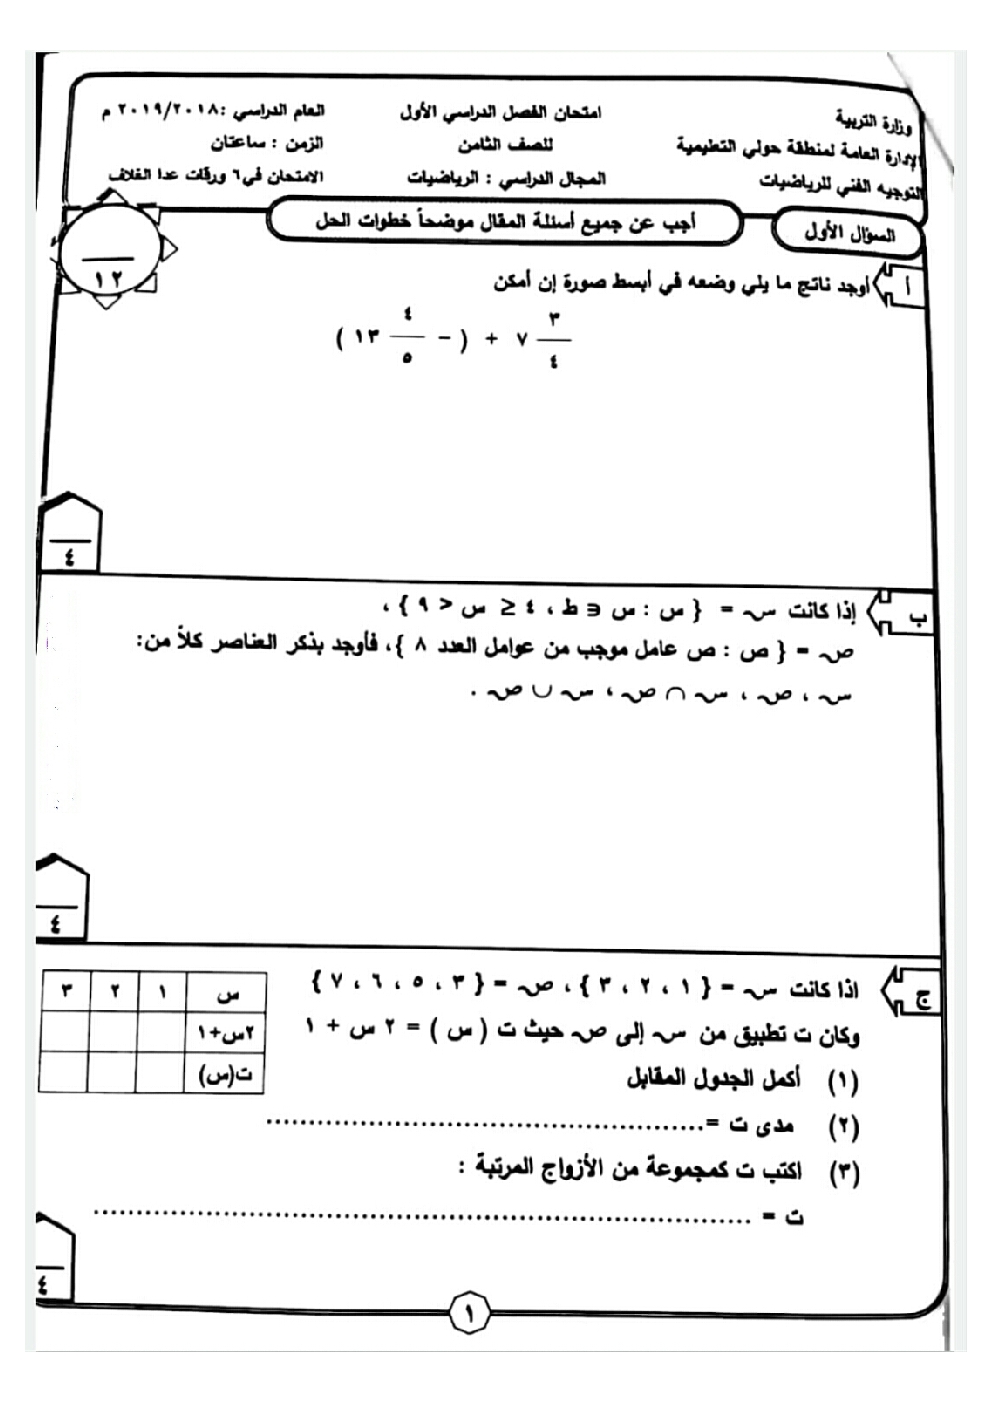 وزارة التربية
الإدارة العامة لمنطقة حولي التعليمية
التوجيه الفني للرياضيات
امتحان الفصل الدراسي الأول
للصف الثامن
المجال الدراسي : الرياضيات
العام الدراسي :٢٠١٩/٢٠١٨ م
الزمن : ساعتان
الامتحان في٦ ورقات عدا الغلاف
السؤال الأول
أجب عن جميع أسئلة المقال موضحاً خطوات الحل
١٢
أ
أوجد ناتج ما يلي وضعه في أبسط صورة إن أمكن
٣/٤ ٧ + ( - ٤/٥ ١٣ )
٤
ب
إذا كانت س = { س : س ∈ ط ، ٤ ≤ س < ٩ } ،
ص = { ص : ص عامل موجب من عوامل العدد ٨ }، فأوجد بذكر العناصر كلاً من:
س ، ص ، س ∩ ص ، س ∪ ص .
٤
ج
اذا كانت س = { ١ ، ٢ ، ٣ } ، ص = { ٣ ، ٥ ، ٦ ، ٧ }
وكان ت تطبيق من س إلى ص حيث ت ( س ) = ٢ س + ١
(١) أكمل الجدول المقابل
س ١ ٢ ٣
٢س+١
ت(س)
(٢) مدى ت =..................................................
(٣) اكتب ت كمجموعة من الأزواج المرتبة :
ت = ..........................................................................
٤
١